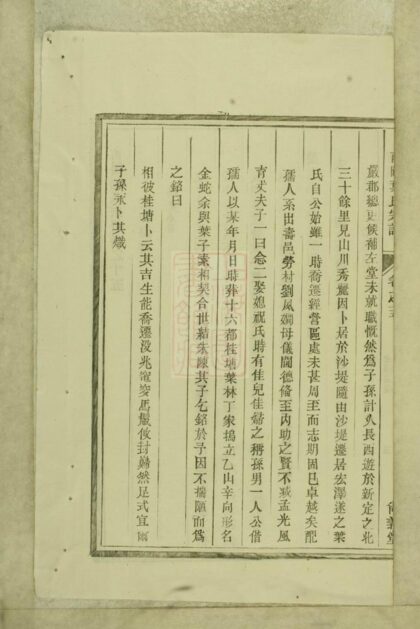 嚴郡總吏候補左堂未就職慨然為子孫計久長西遊於新定之北
三十餘里見山川秀麗因卜居於沙堤隨由沙堤遷居宏澤遂之葉
氏自公始雖一時喬遷經營區處未甚周至而志期固已卓越矣配
孺人系出壽邑勞村劉鳳嫺母儀閫德備至內助之賢不減孟光風
育丈夫子一曰念二娶媳祝氏時有佳兒佳婦之稱孫男一人公偕
孺人以某年月日時葬十六都桂塘葉林丁家塢立乙山辛向形名
金蛇余與葉子素相契合世結朱陳其子乞銘於予因不揣陋而為
之銘曰
相彼桂塘卜云其吉生能喬遷沒兆電窆馬鬣攸封歸然足式宜爾
子孫永卜其熾